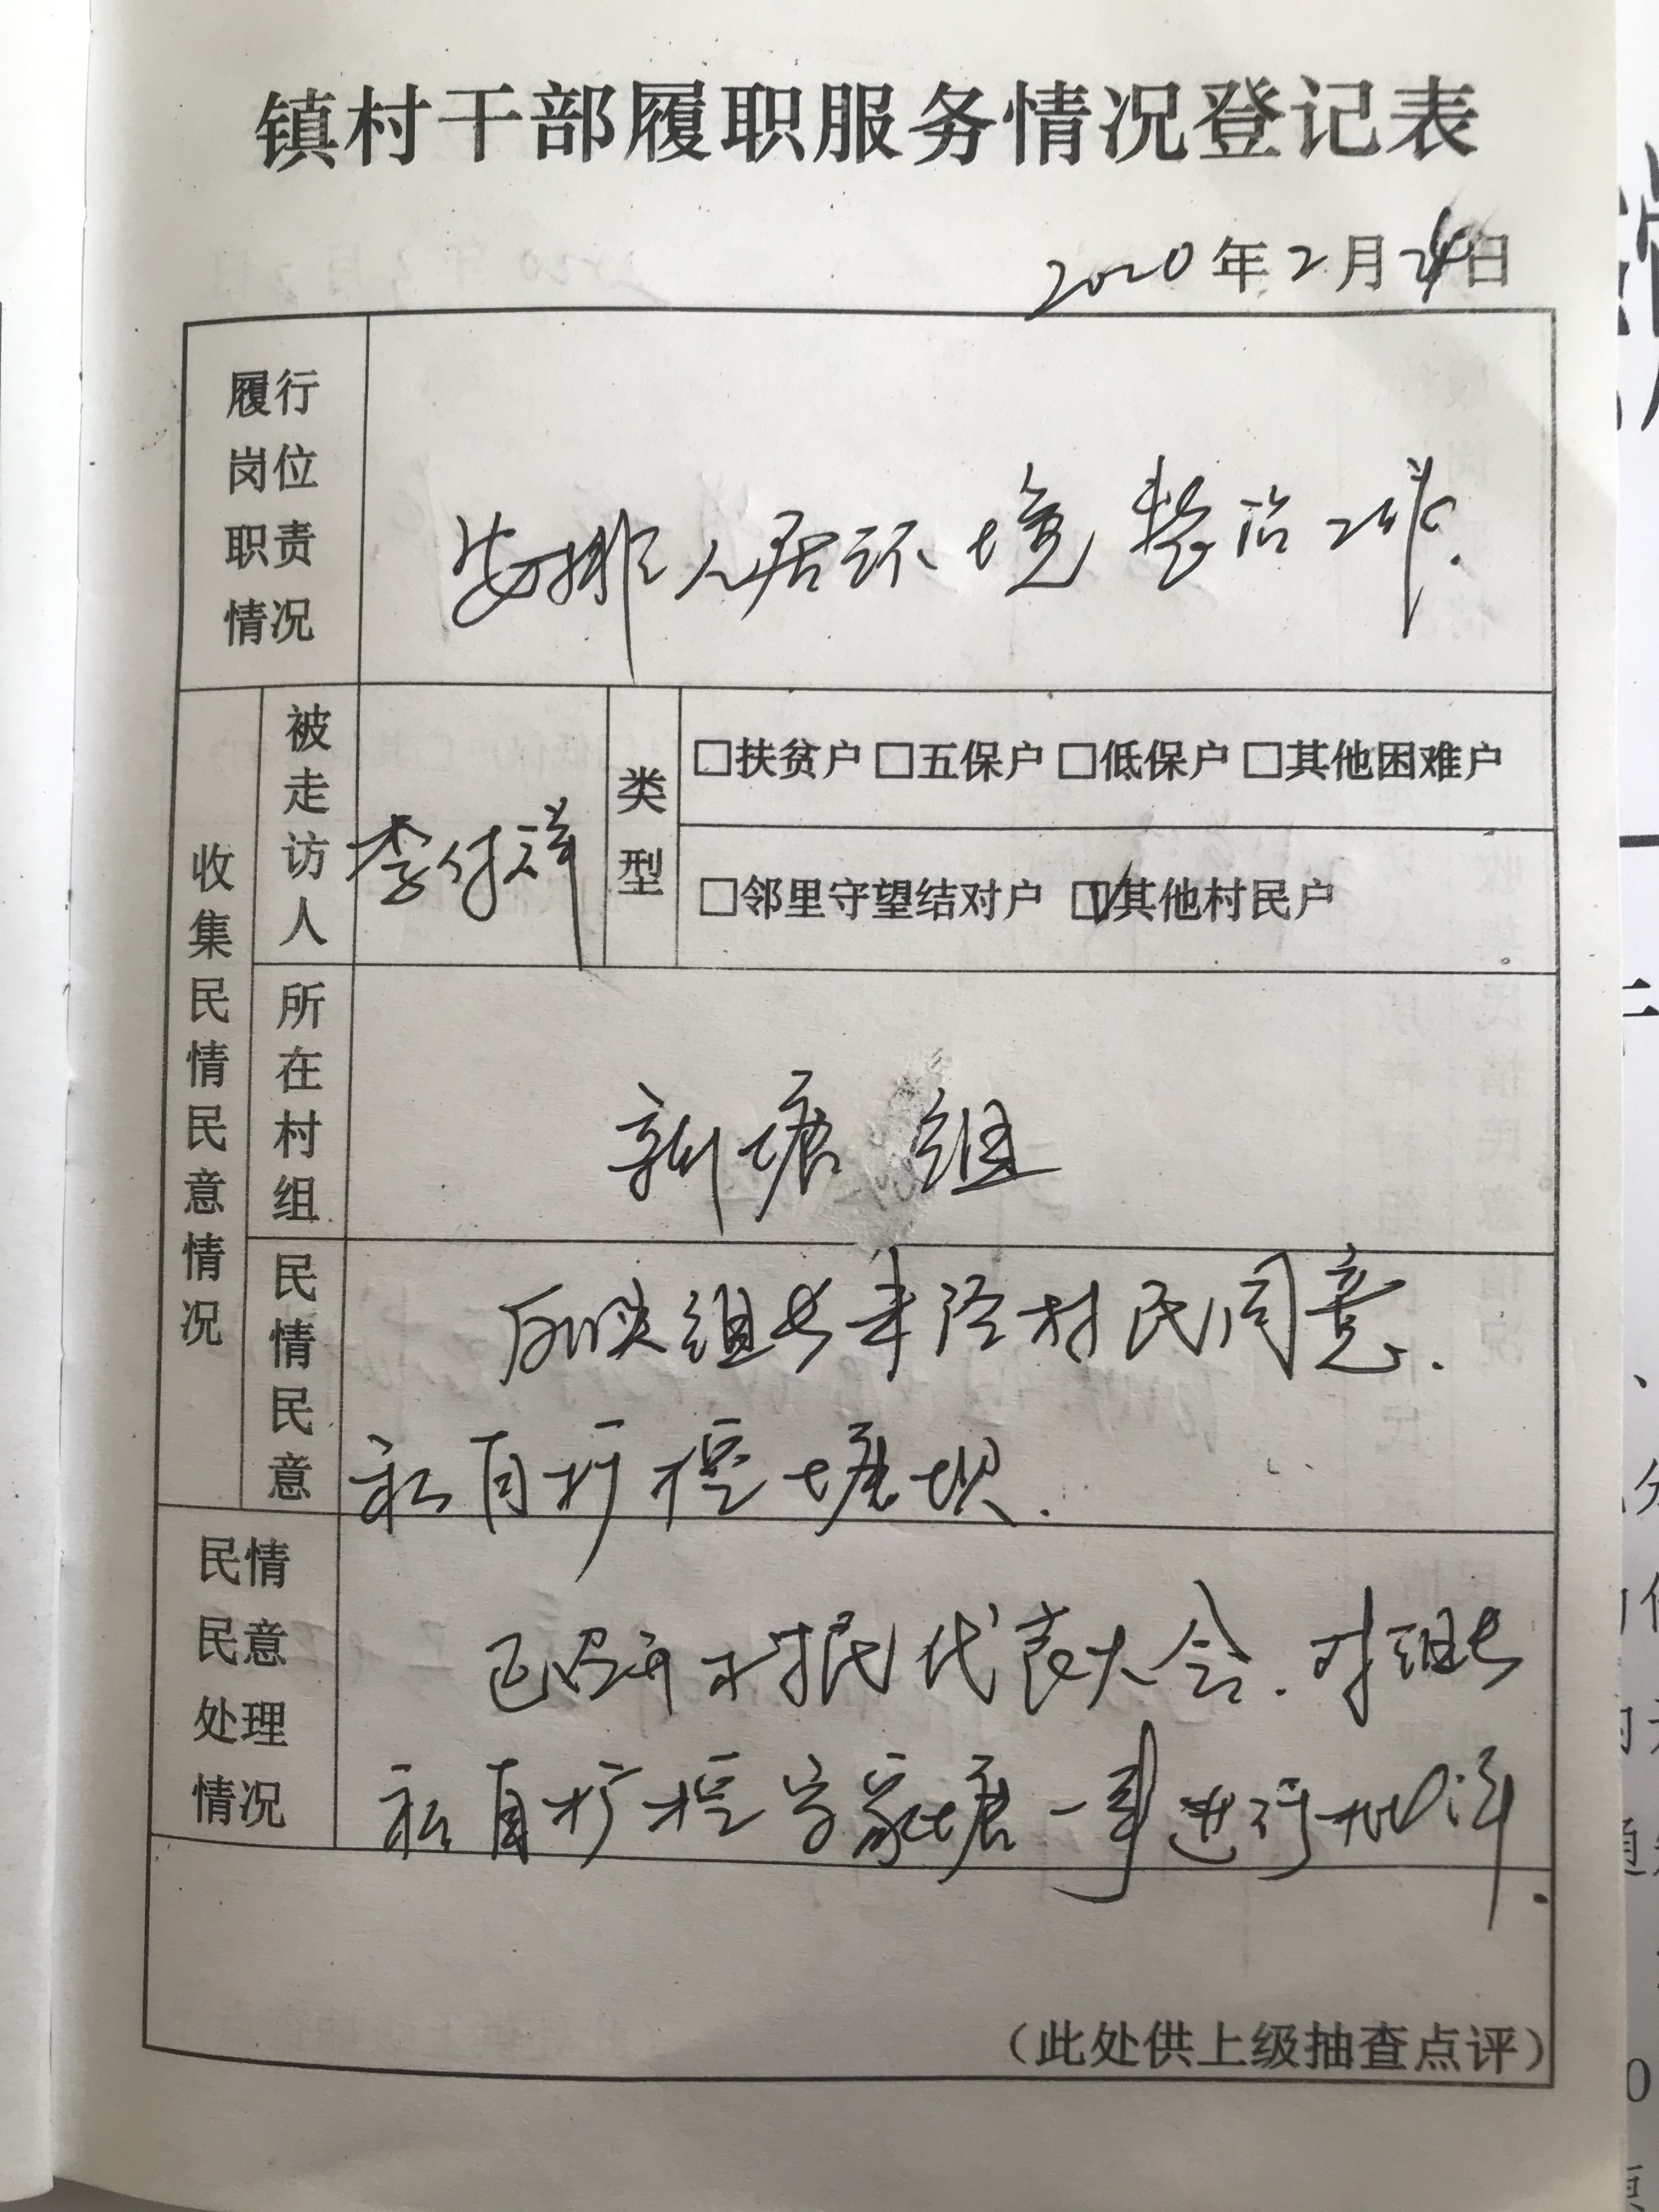 镇村干部履职服务情况登记表
2020年2月24日
履行
岗位
职责
情况
安排人居环境整治工作.
收集民情民意情况
被走访人
李付祥
类型
□扶贫户 □五保户 □低保户 □其他困难户
□邻里守望结对户 ☑其他村民户
所在村组
新塘 组
民情民意
反映组长未经村民同意.
私自扩挖塘坝.
民情
民意
处理
情况
已召开村民代表大会.对组长
私自扩挖 家塘一事进行批评.
（此处供上级抽查点评）